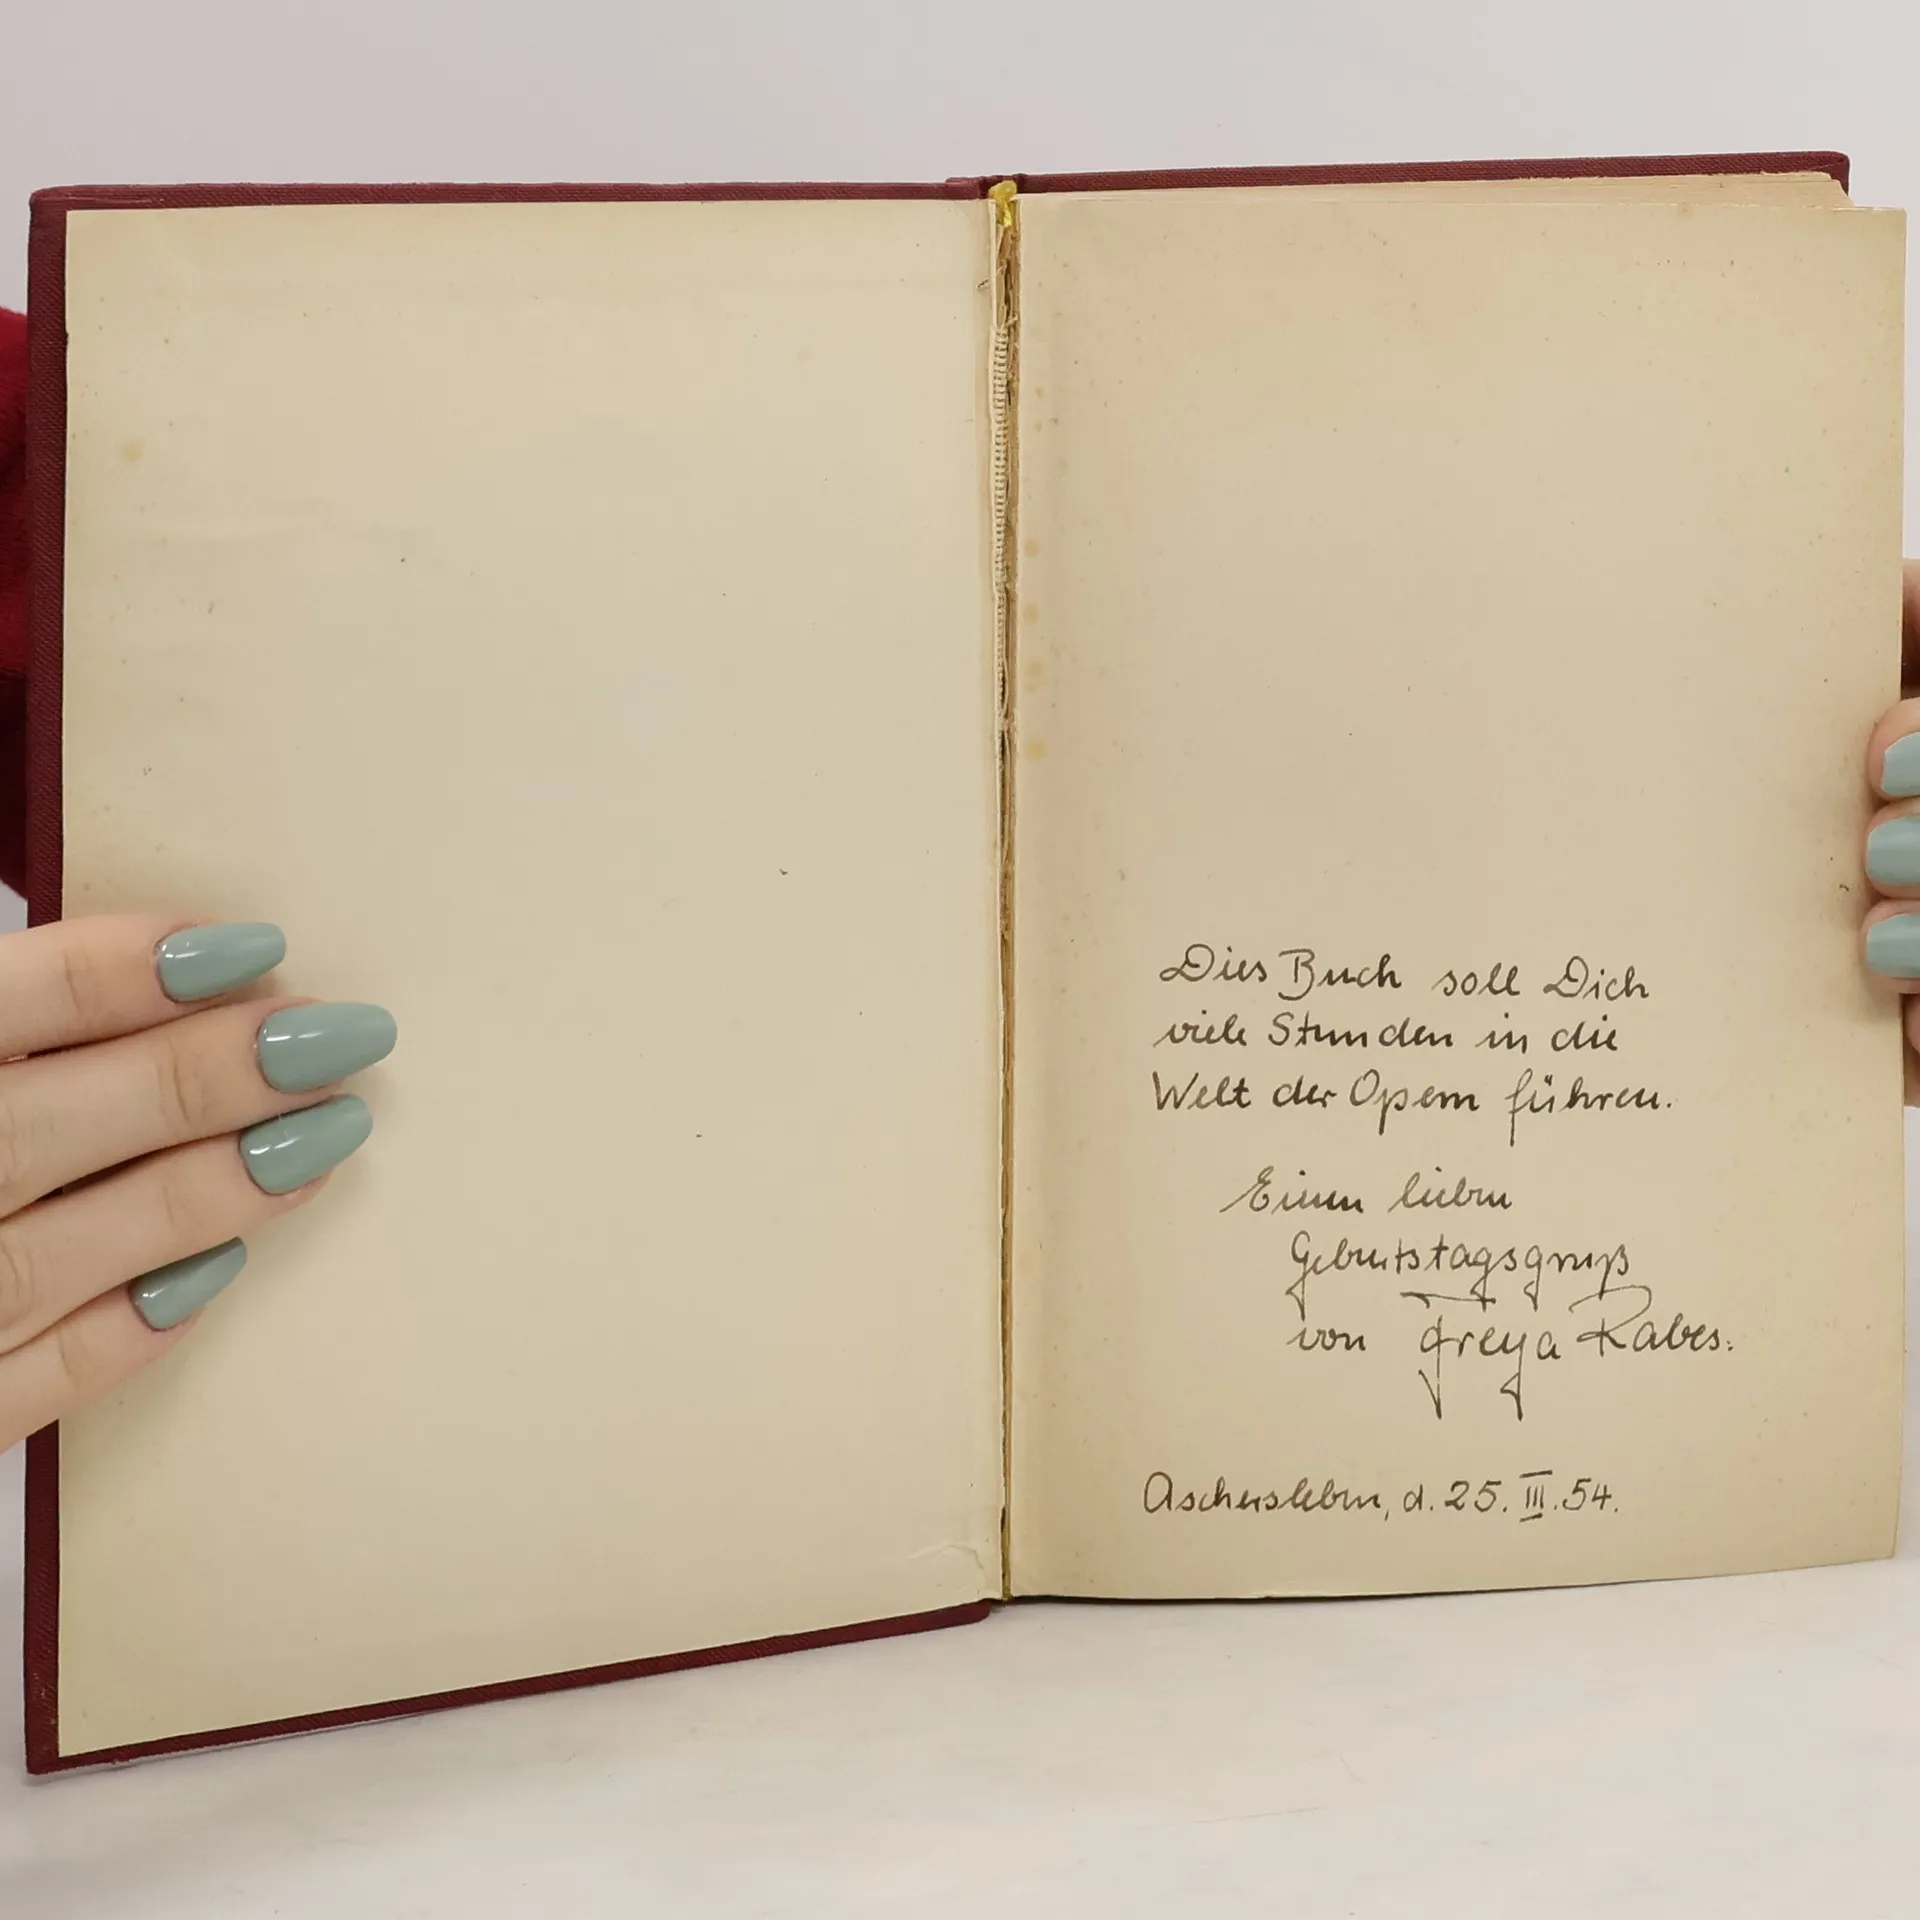 Dies Buch soll Dich
viele Stunden in die
Welt der Opern führen.
Einen lieben
Geburtstagsgruß
von Freya Rabes.
Aschersleben, d. 25. III. 54.